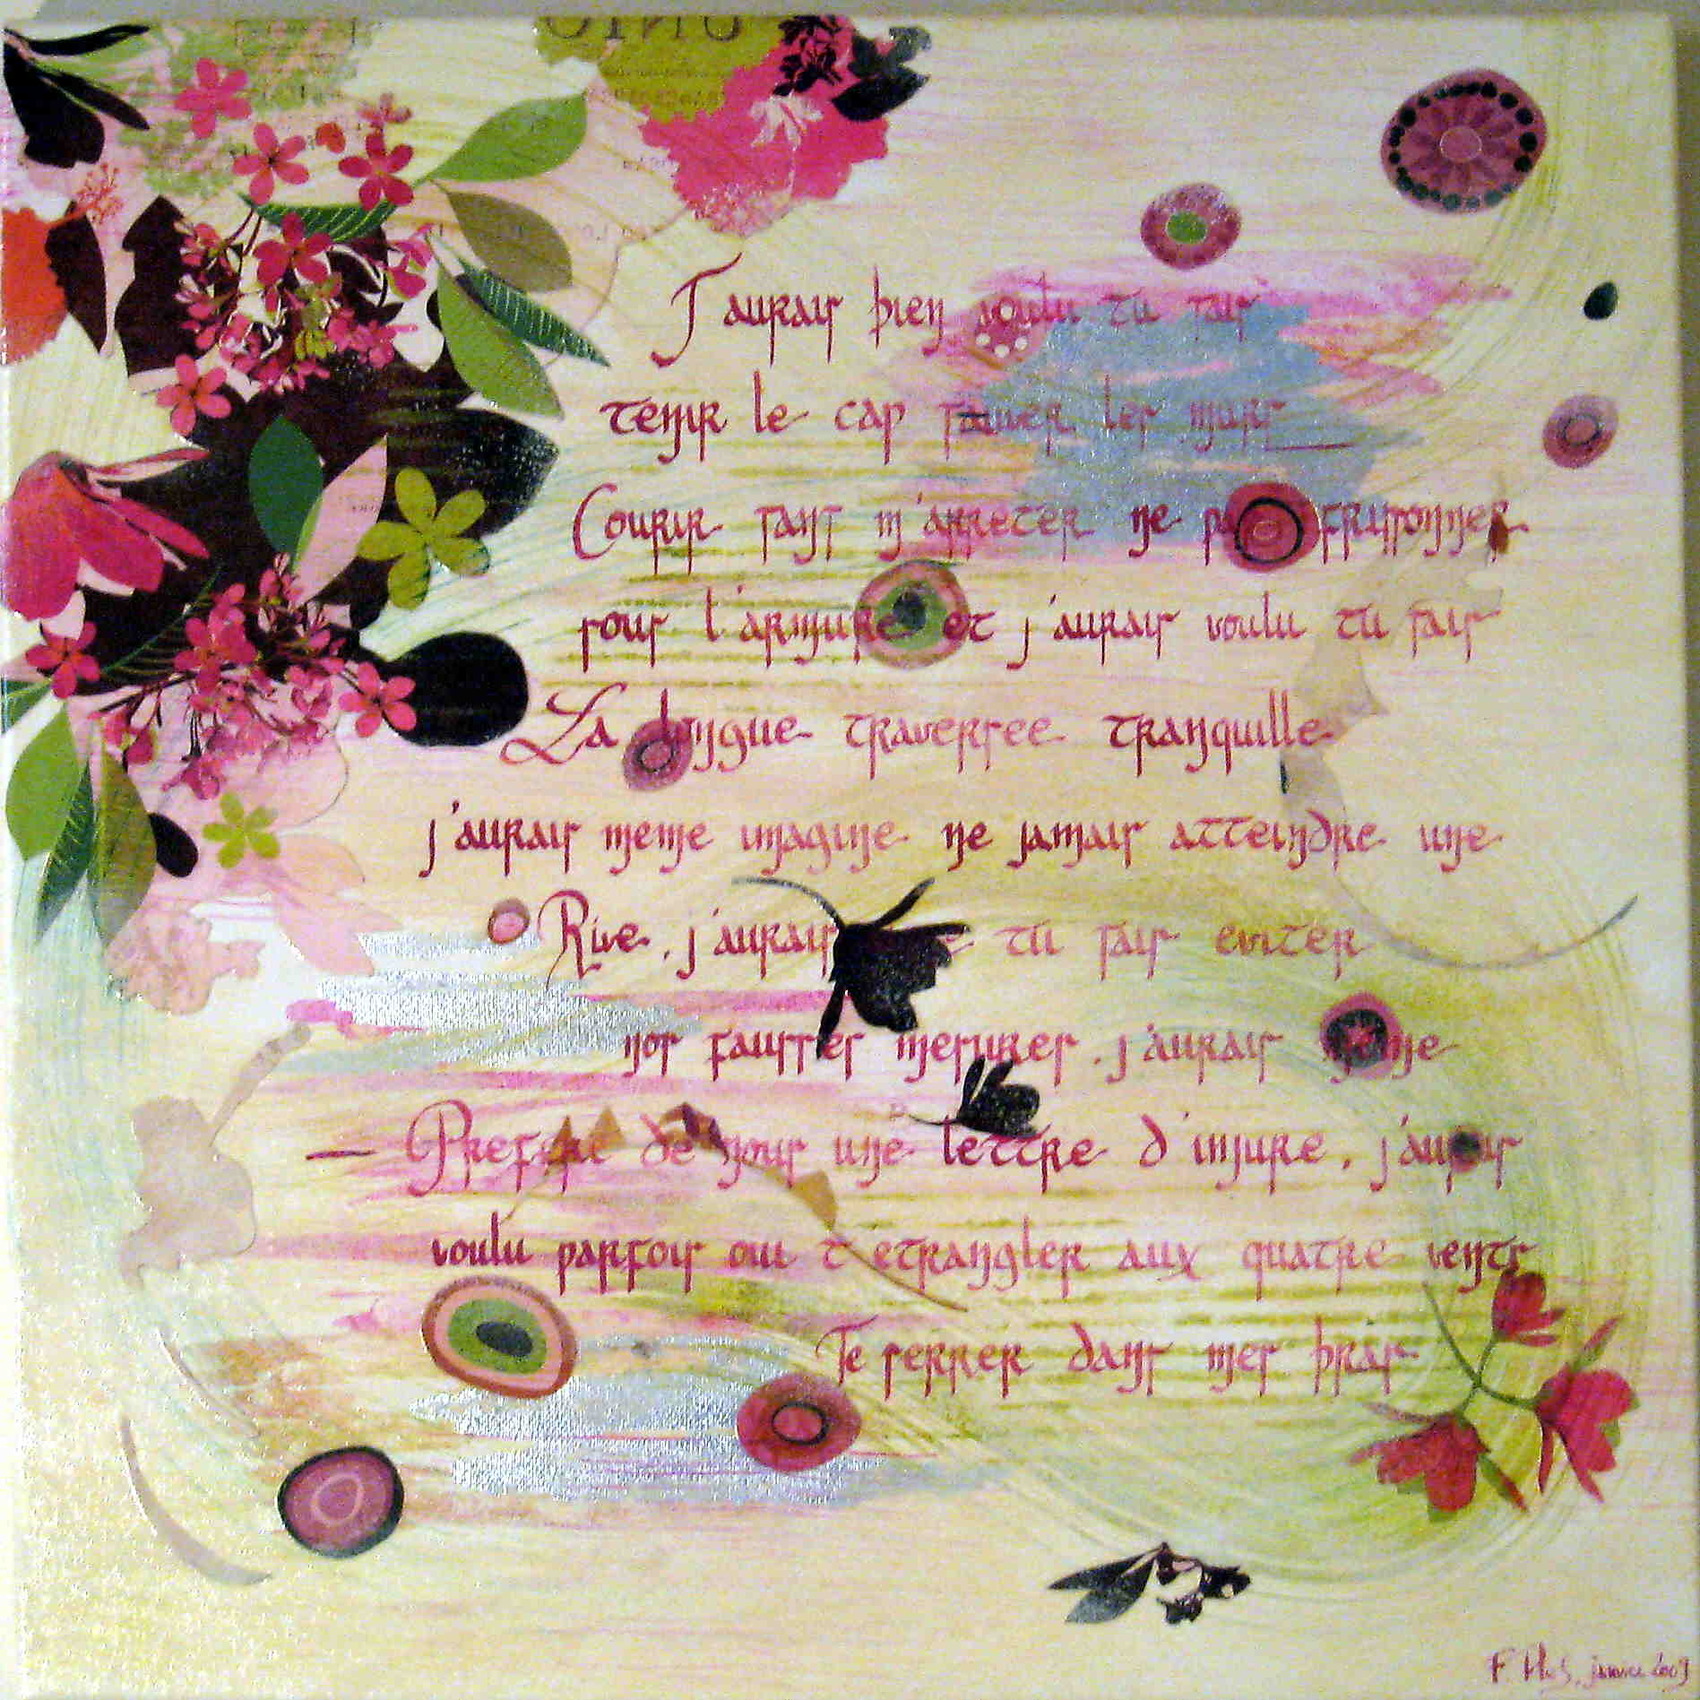 J'aurais bien voulu tu sais
tenir le cap sauver les murs
Courir sans m'arreter ne pas frissonner
sous l'armure et j'aurais voulu tu sais
La longue traversee tranquille
j'aurais meme imagine ne jamais atteindre une
Rive, j'aurais tu sais eviter
nos fausses mesures, j'aurais meme
Prefere de nous une lettre d'injure, j'aurais
voulu parfois oui t etrangler aux quatre vents
Te serrer dans mes bras